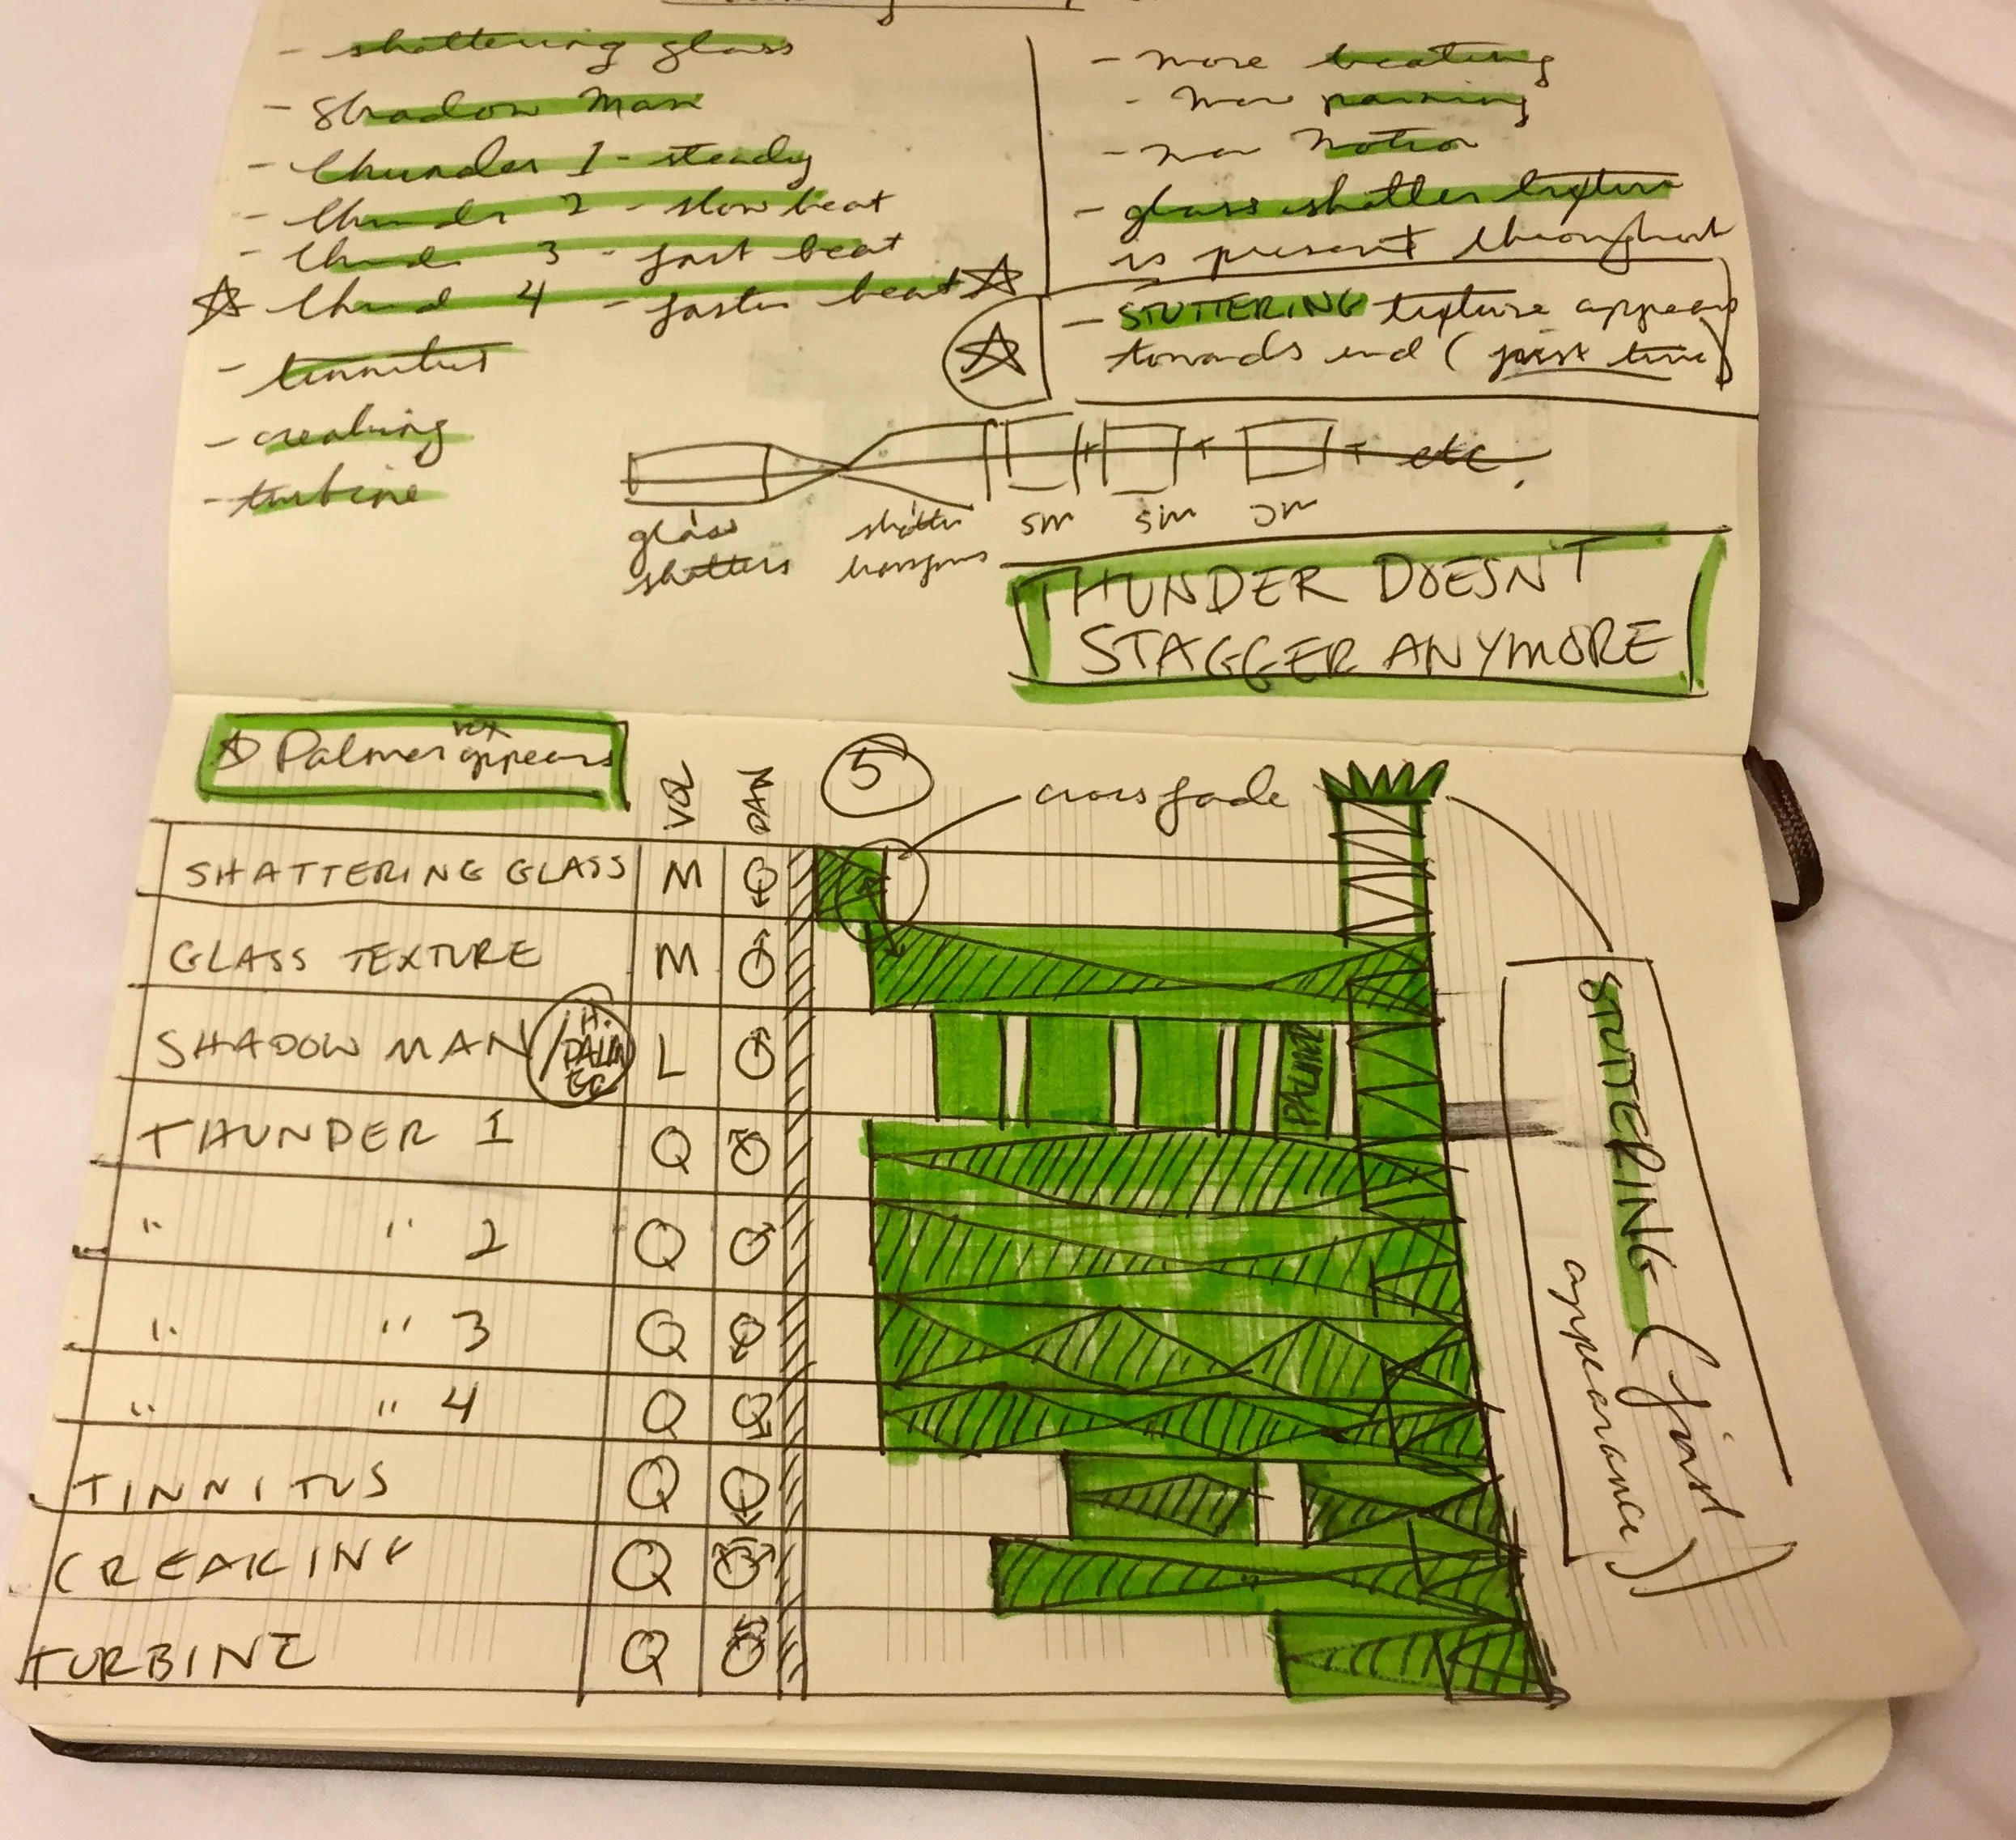 - shattering glass
- Shadow Man
- thunder 1 - steady
- thunder 2 - slow beat
- thund 3 - fast beat
- thund 4 - faster beat
- tinnitus
- creaking
- turbine
- more beating
- more panning
- more motion
- glass shatter texture
is present throughout
- STUTTERING texture appears
towards end (first time)
etc.
glass
shatters
shatter
transforms
sm
sm
sm
THUNDER DOESN'T
STAGGER ANYMORE
Palmer vox appears
VOL
PAN
5
crossfade
SHATTERING GLASS M
GLASS TEXTURE M
SHADOW MAN / H. PALM L
PALMER
THUNDER 1 Q
" " 2 Q
" " 3 Q
" " 4 Q
TINNITUS Q
CREAKING Q
TURBINE Q
STUTTERING (first
appearance)